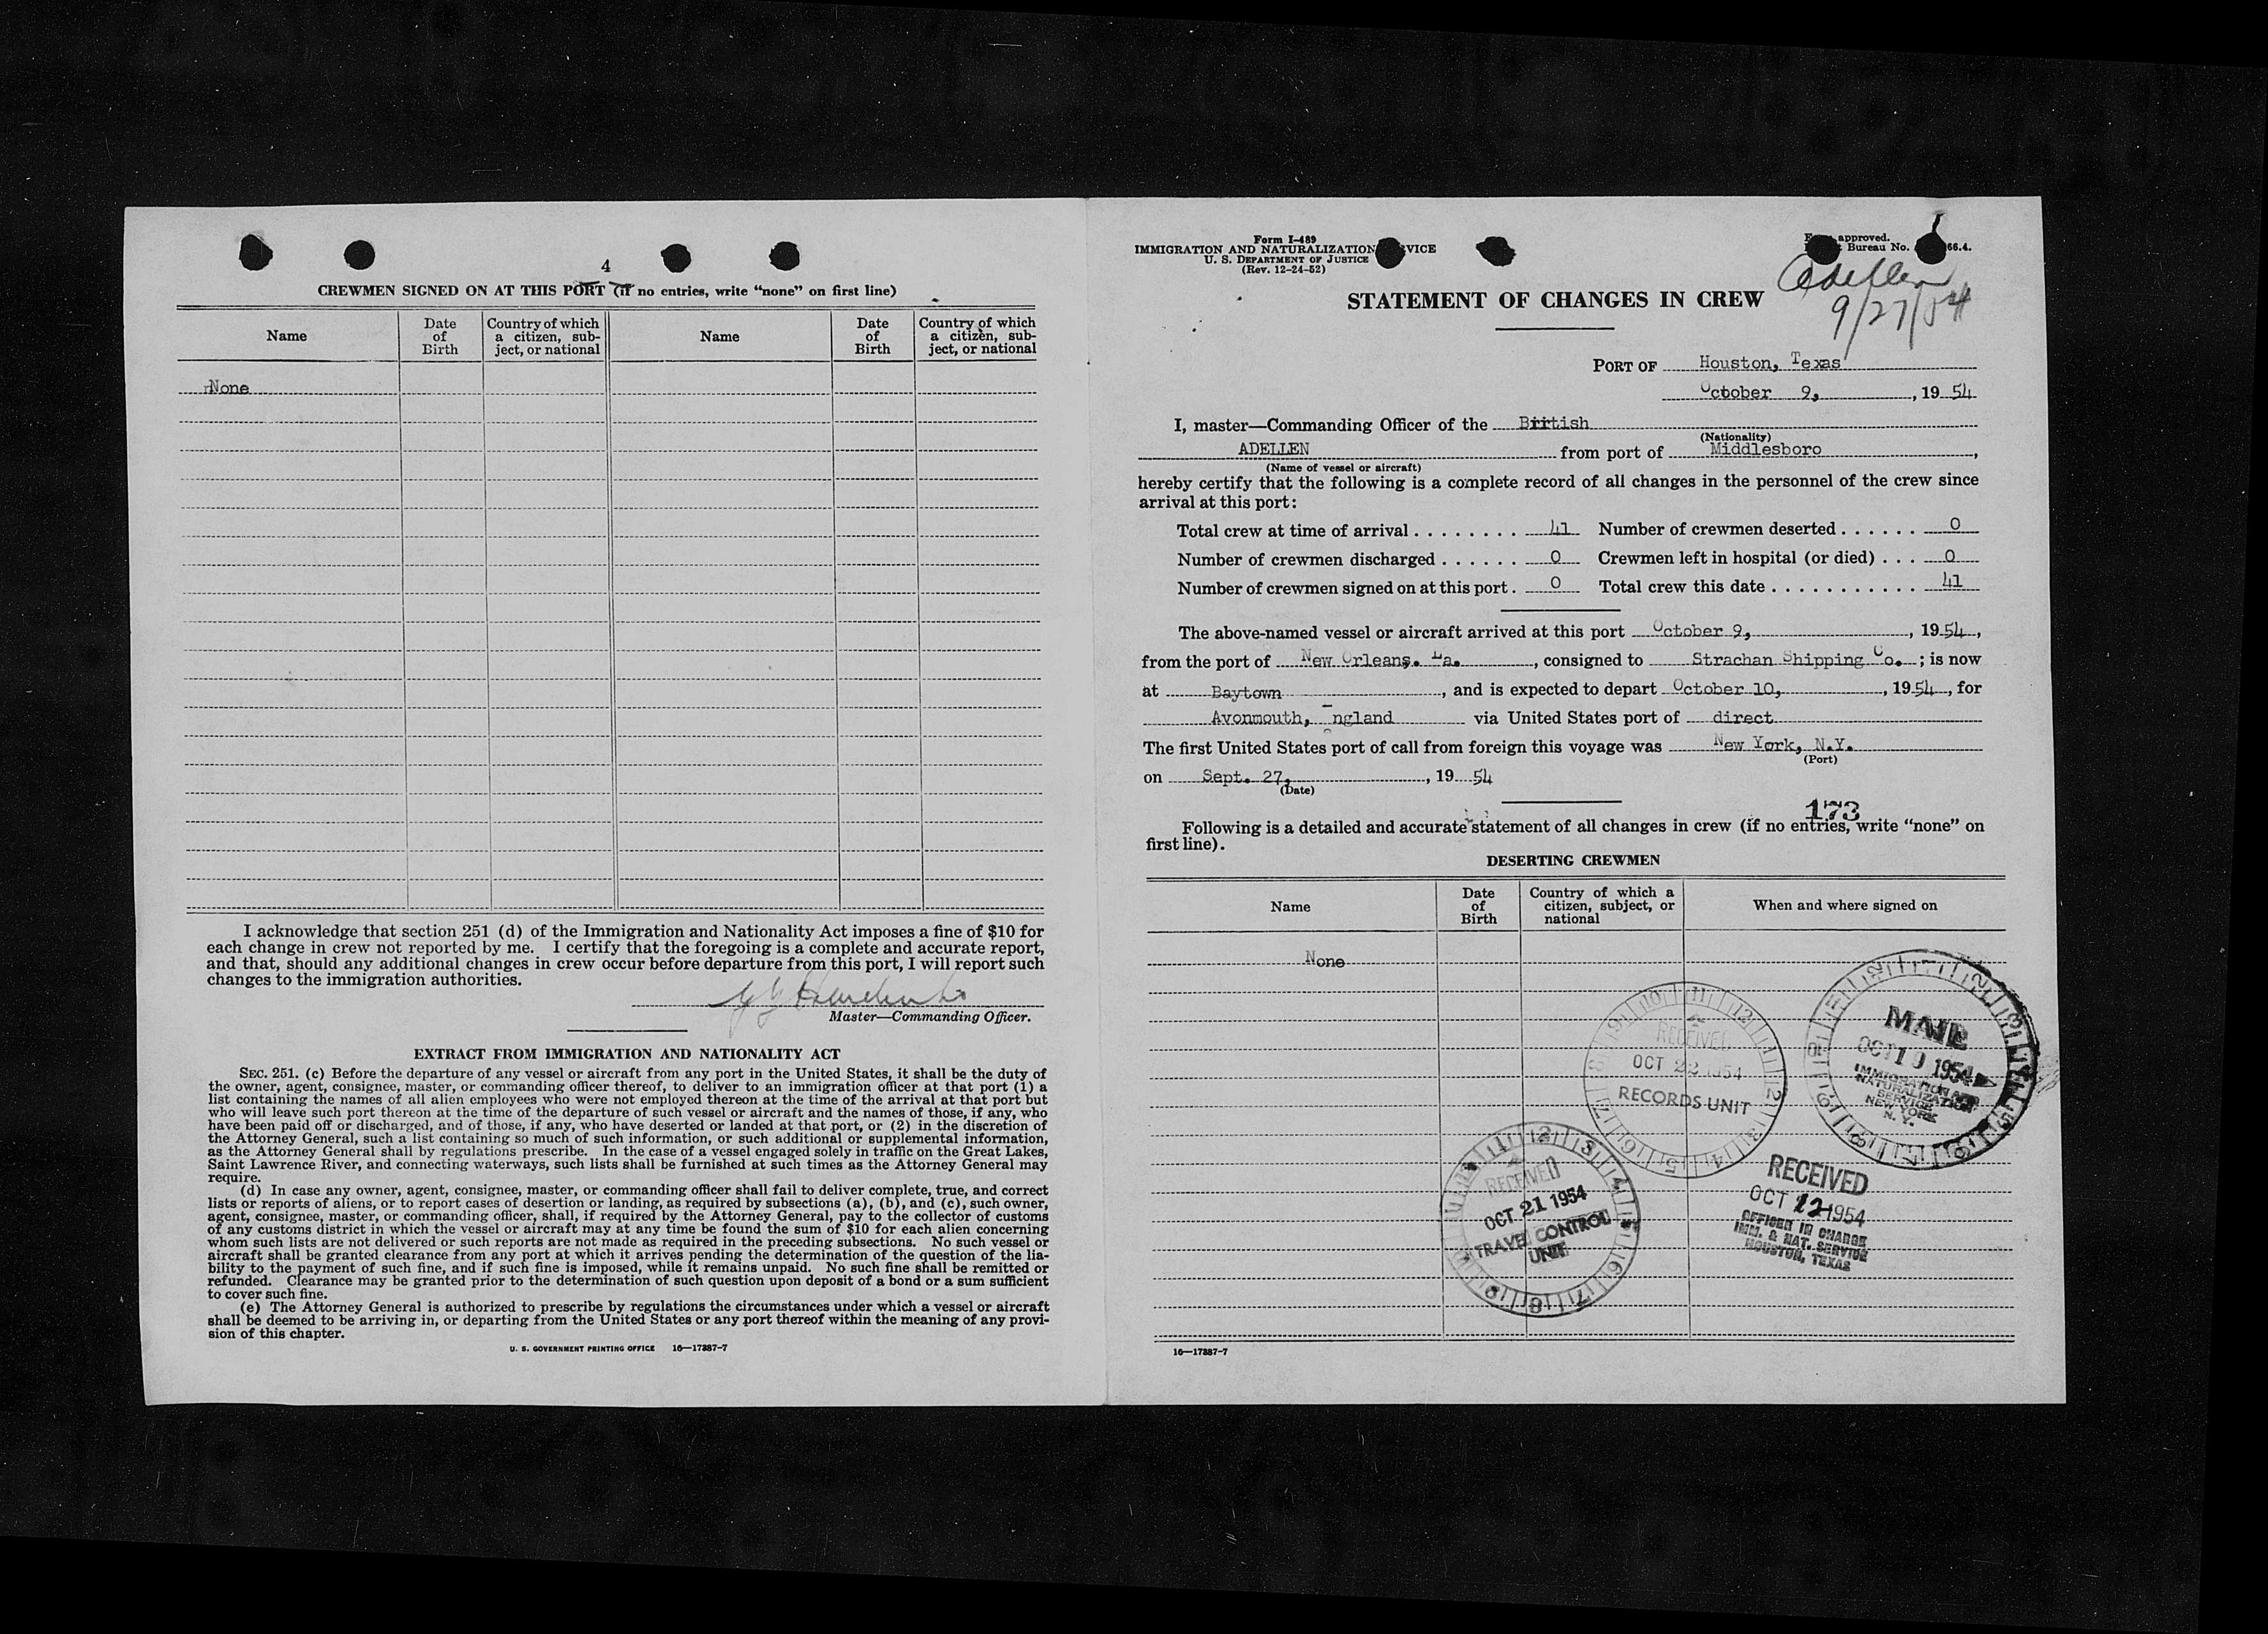 4
CREWMEN SIGNED ON AT THIS PORT (if no entries, write "none" on first line)
Name
Date of Birth
Country of which a citizen, subject, or national
Name
Date of Birth
Country of which a citizen, subject, or national
None
I acknowledge that section 251 (d) of the Immigration and Nationality Act imposes a fine of $10 for
each change in crew not reported by me. I certify that the foregoing is a complete and accurate report,
and that, should any additional changes in crew occur before departure from this port, I will report such
changes to the immigration authorities.
Master—Commanding Officer.
EXTRACT FROM IMMIGRATION AND NATIONALITY ACT
SEC. 251. (c) Before the departure of any vessel or aircraft from any port in the United States, it shall be the duty of
the owner, agent, consignee, master, or commanding officer thereof, to deliver to an immigration officer at that port (1) a
list containing the names of all alien employees who were not employed thereon at the time of the arrival at that port but
who will leave such port thereon at the time of the departure of such vessel or aircraft and the names of those, if any, who
have been paid off or discharged, and of those, if any, who have deserted or landed at that port, or (2) in the discretion of
the Attorney General, such a list containing so much of such information, or such additional or supplemental information,
as the Attorney General shall by regulations prescribe. In the case of a vessel engaged solely in traffic on the Great Lakes,
Saint Lawrence River, and connecting waterways, such lists shall be furnished at such times as the Attorney General may
require.
(d) In case any owner, agent, consignee, master, or commanding officer shall fail to deliver complete, true, and correct
lists or reports of aliens, or to report cases of desertion or landing, as required by subsections (a), (b), and (c), such owner,
agent, consignee, master, or commanding officer, shall, if required by the Attorney General, pay to the collector of customs
of any customs district in which the vessel or aircraft may at any time be found the sum of $10 for each alien concerning
whom such lists are not delivered or such reports are not made as required in the preceding subsections. No such vessel or
aircraft shall be granted clearance from any port at which it arrives pending the determination of the question of the lia-
bility to the payment of such fine, and if such fine is imposed, while it remains unpaid. No such fine shall be remitted or
refunded. Clearance may be granted prior to the determination of such question upon deposit of a bond or a sum sufficient
to cover such fine.
(e) The Attorney General is authorized to prescribe by regulations the circumstances under which a vessel or aircraft
shall be deemed to be arriving in, or departing from the United States or any port thereof within the meaning of any provi-
sion of this chapter.
U. S. GOVERNMENT PRINTING OFFICE 16—17387-7
Form I-489
IMMIGRATION AND NATURALIZATION VICE
U. S. DEPARTMENT OF JUSTICE
(Rev. 12-24-52)
approved.
Bureau No. 66.4.
Adellen
9/27/54
STATEMENT OF CHANGES IN CREW
PORT OF Houston, Texas
October 9, , 19 54
I, master—Commanding Officer of the British
(Nationality)
ADELLEN from port of Middlesboro ,
(Name of vessel or aircraft)
hereby certify that the following is a complete record of all changes in the personnel of the crew since
arrival at this port:
Total crew at time of arrival . . . . . . . . 41 Number of crewmen deserted . . . . . . 0
Number of crewmen discharged . . . . . . 0 Crewmen left in hospital (or died) . . . 0
Number of crewmen signed on at this port . 0 Total crew this date . . . . . . . . . . . 41
The above-named vessel or aircraft arrived at this port October 9, , 19 54 ,
from the port of New Orleans. La. , consigned to Strachan Shipping Co. ; is now
at Baytown , and is expected to depart October 10, , 19 54 , for
Avonmouth, ngland via United States port of direct
The first United States port of call from foreign this voyage was New York, N.Y.
(Port)
on Sept. 27, , 19 54
(Date)
173
Following is a detailed and accurate statement of all changes in crew (if no entries, write "none" on
first line).
DESERTING CREWMEN
Name
Date of Birth
Country of which a citizen, subject, or national
When and where signed on
None
RECEIVED
OCT 22 1954
RECORDS UNIT
MAIL
OCT 19 1954
IMMIGRATION AND
NATURALIZATION
SERVICE
NEW YORK
N. Y.
RECEIVED
OCT 21 1954
TRAVEL CONTROL
UNIT
RECEIVED
OCT 12 1954
OFFICER IN CHARGE
IMM. & NAT. SERVICE
HOUSTON, TEXAS
16—17387-7